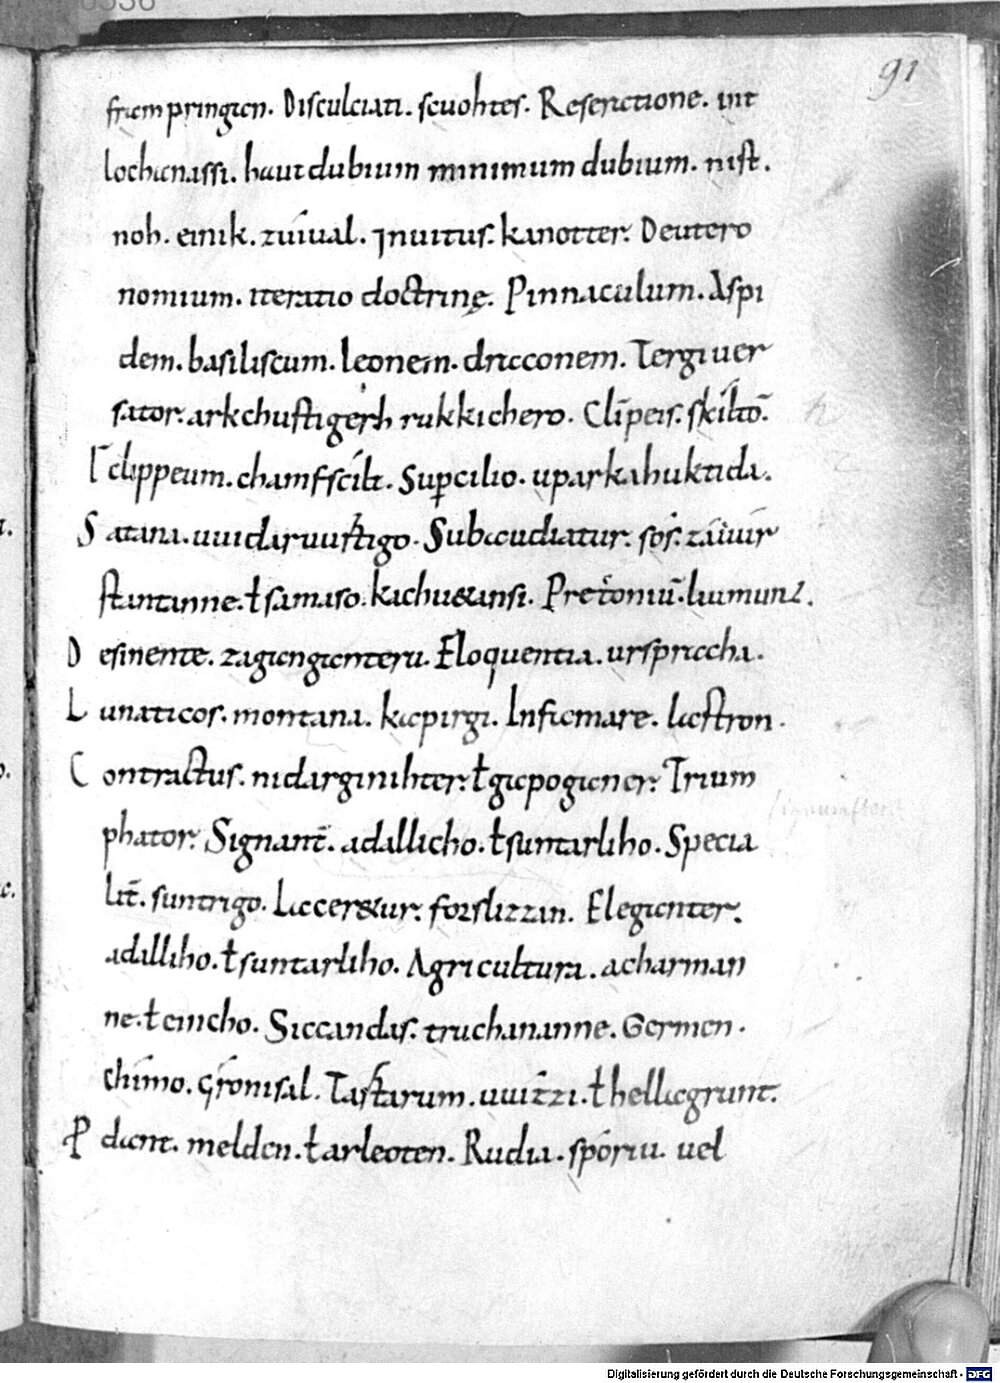 91
frampringan. Disculciati. scuohtes. Reseratione. int
lochanassi. haut dubium minimum dubium. nist.
noh. einik. zuiual. Inuitus. kanotter. Deutero
nomium. iteratio doctrinę. Pinnaculum. Aspi
dem. basiliscum. leonem. draconem. Tergiuer
sator. arkchustiger ł rukkichero. Clipeis. skiltō.
clippeum. chamfscilt. Supcilio. uparkahuktida.
Satana. uuidaruustigo. Subaudiatur. sos. zauuir
stantanne. ł samaso. kachu&ansi. Pretoriū. liumunt.
Desinente. zagangenteru. Eloquentia. urspracha.
Lunaticos. montana. kapirgi. Infamare. lastron.
Contractus. nidarginihter. ł gapoganer. Trium
phator. Signant̄. adallicho. ł suntarliho. Specia
lit̄. suntrigo. Lacer&ur. forslizzin. Eleganter.
adalliho. ł suntarliho. Agricultura. acharman
ne. ł eincho. Siccandas. truchananne. Germen.
chimo. Gronisal. Tartarum. uuizzi. ł hellagrunt.
Pdant. melden. ł arleoten. Rudia. sporiu. uel
Digitalisierung gefördert durch die Deutsche Forschungsgemeinschaft - DFG